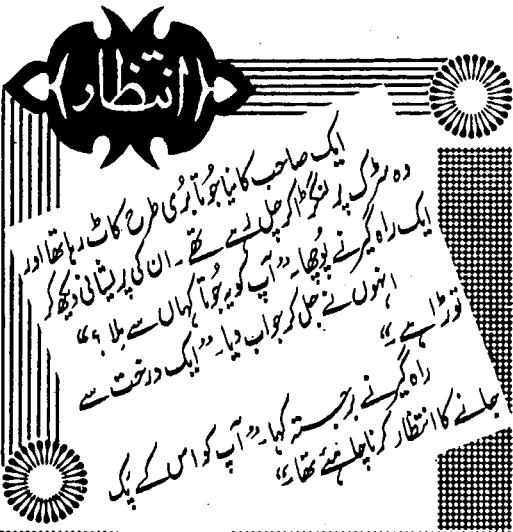 انتظار
ایک صاحب کا نیا جُوتا بُری طرح کاٹ رہا تھا اور
وہ سڑک پر لنگڑا کر چل رہے تھے۔ ان کی پریشانی دیکھ کر
ایک راہ گیر نے پُوچھا۔ ”آپ کو یہ جُوتا کہاں سے ملا؟“
انہوں نے جل کر جواب دیا۔ ”ایک درخت سے
توڑا ہے۔“
راہ گیر نے برجستہ کہا۔ ”آپ کو اس کے پک
جانے کا انتظار کرنا چاہئے تھا۔“